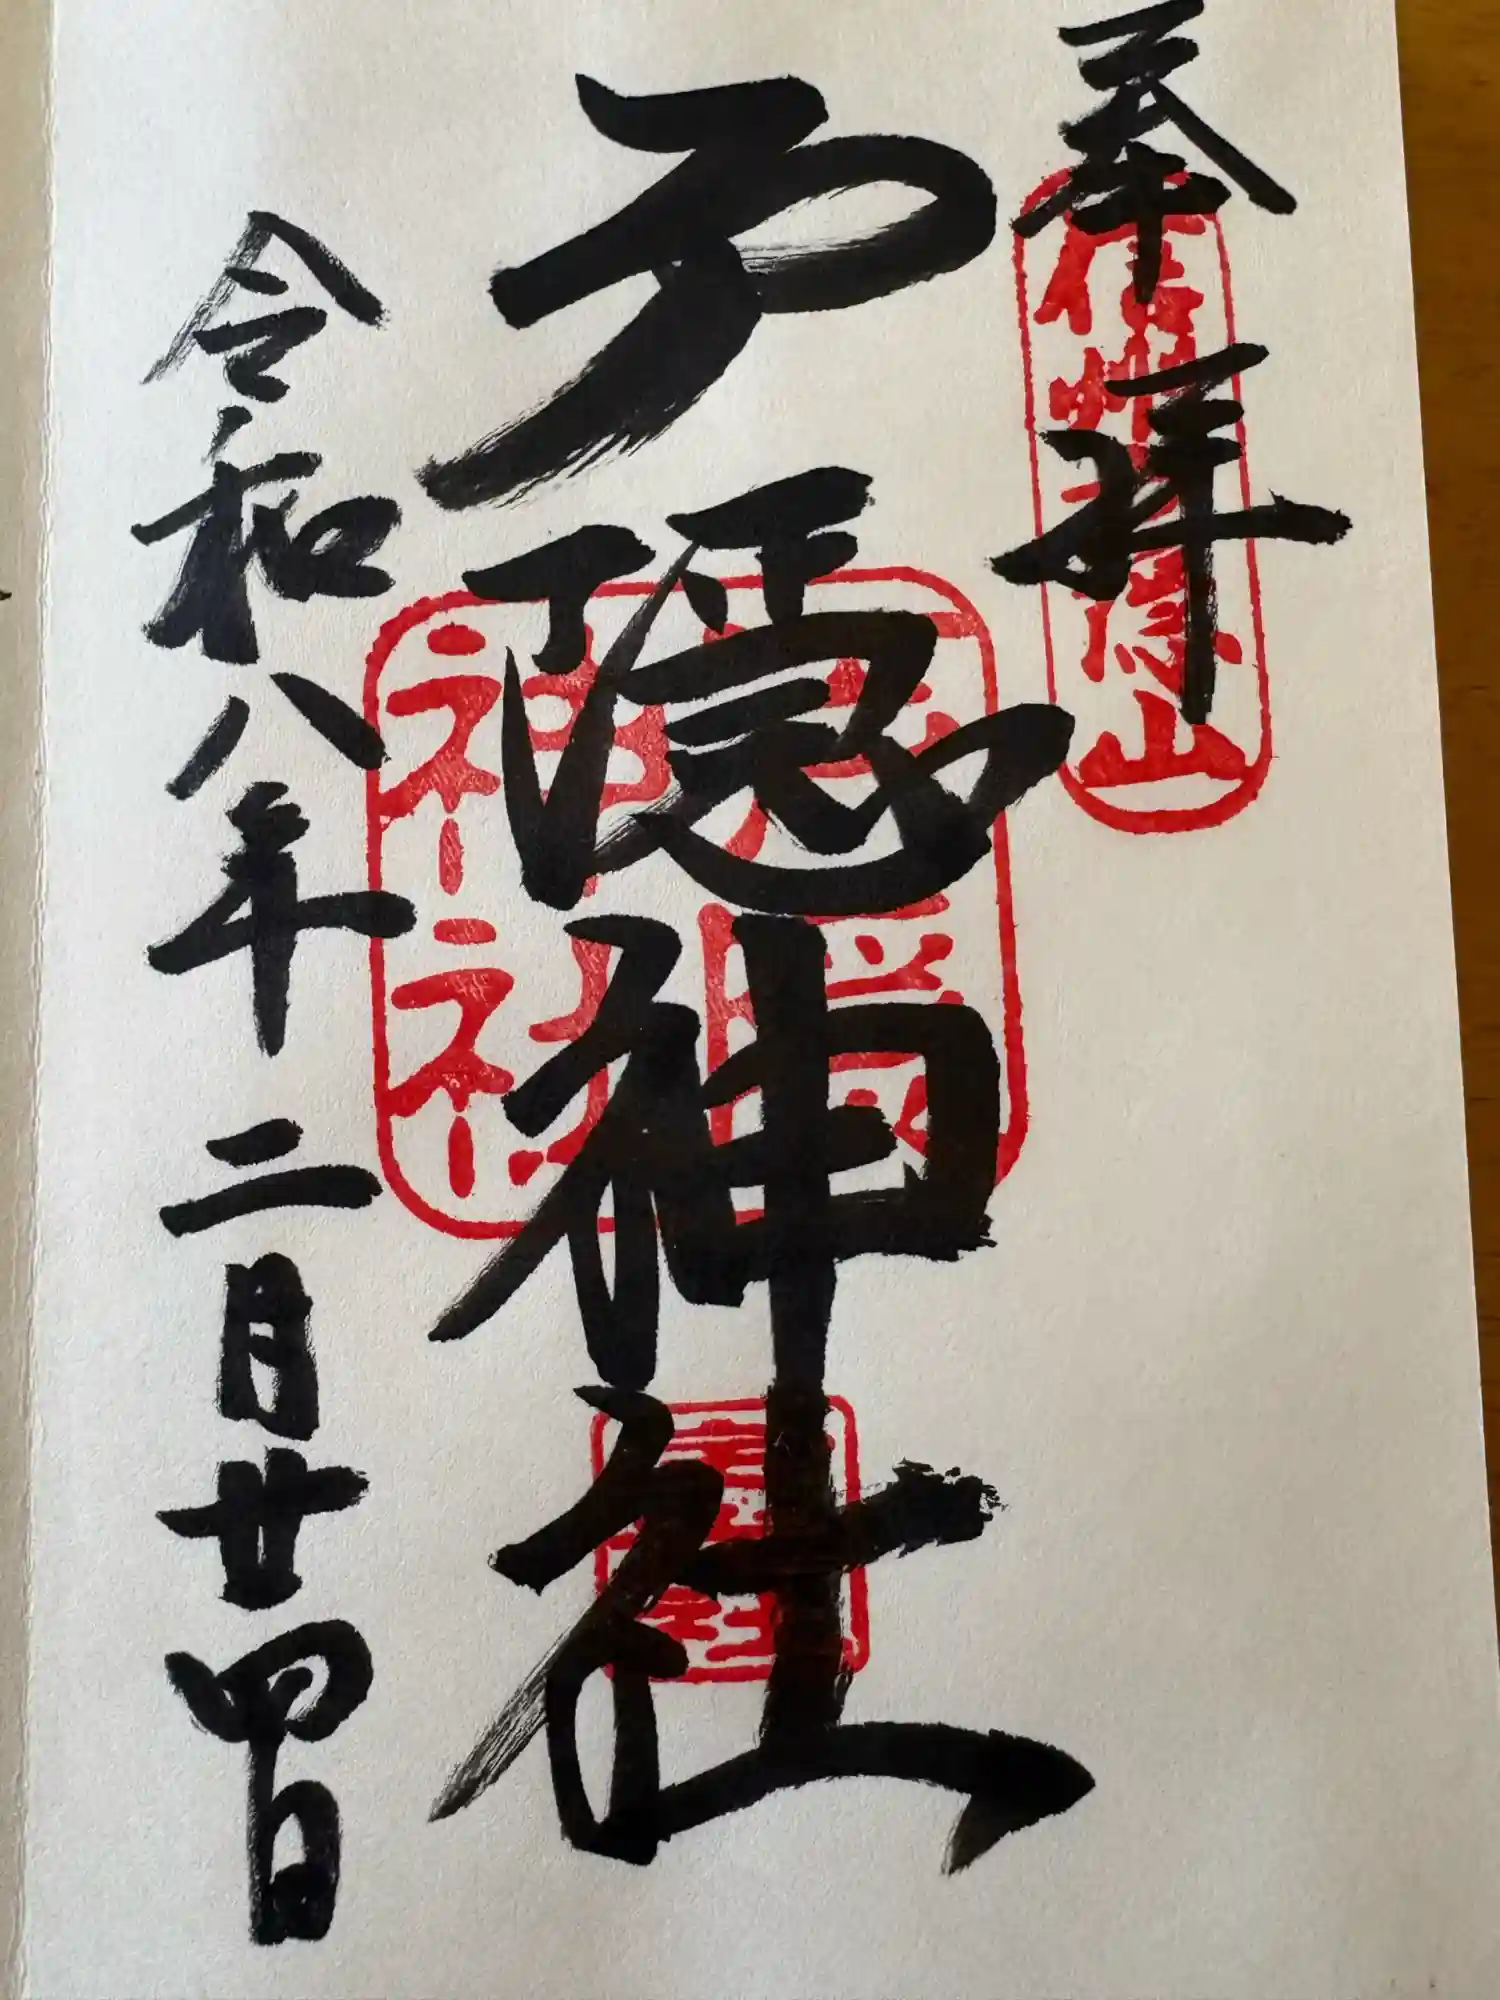 奉拝
信州戸隠山
戸隠神社
戸隠神社
令和八年二月廿四日